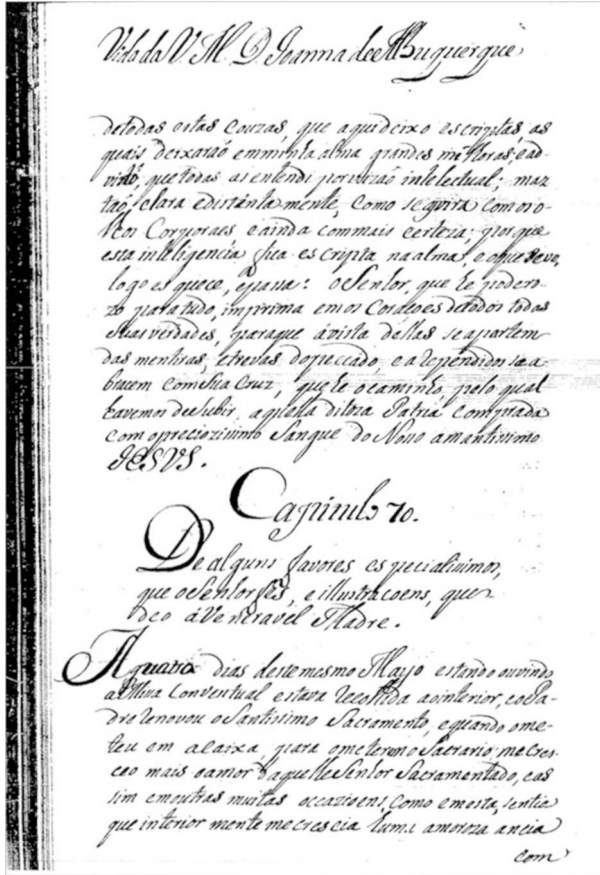 Vida da V. M. D. Joanna de Albuquerque
de todas estas couzas, que aqui deixo escriptas, as
quais deixarão em minha alma grandes melhoras; e ad
virto, que todas as entendi por vizão intelectual; mas
tão clara e distinta mente, como se ouvira com os o-
lhos Corporaes e ainda com mais certeza; porque
esta inteligencia fica escripta na alma, e o que se ve,
logo esquece, e passa: o Senhor, que he podero-
zo para tudo, imprima em os Coraçoes de todos todas
suas verdades, para que á vista dellas se apartem
das mentiras, e trevas do peccado, e arependidos se a-
bracem com sua Cruz, que he o caminho, pelo qual
havemos de subir aquella ditoza Patria comprada
com o preciozissimo Sangue do Nosso amantissimo
JESVS.
Capitulo 70.
De alguns favores especialissimos,
que o Senhor fes, e illustraçoens, que
deo á Veneravel Madre.
A quatro dias deste mesmo Mayo estando ouvindo
a Missa Conventual estava recolhida ao interior, e o Pa-
dre renovou o Santissimo Sacramento, e quando o me-
teu em a caixa para o meter no Sacrario, me cres-
ceo mais o amor daquelle Senhor Sacramentado, e as
sim em outras muitas occazioens, como em esta, sentia
que interior mente me crescia huma amoroza ancia
com